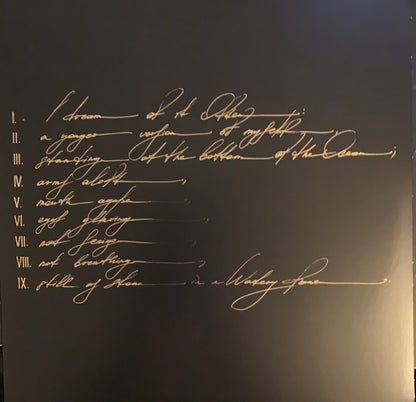 I. I dream of it often:
II. a younger version of myself,
III. standing at the bottom of the Ocean;
IV. arms aloft,
V. mouth agape,
VI. eyes glaring,
VII. not seeing,
VIII. not breathing,
IX. still as stone in a Watery Fane.